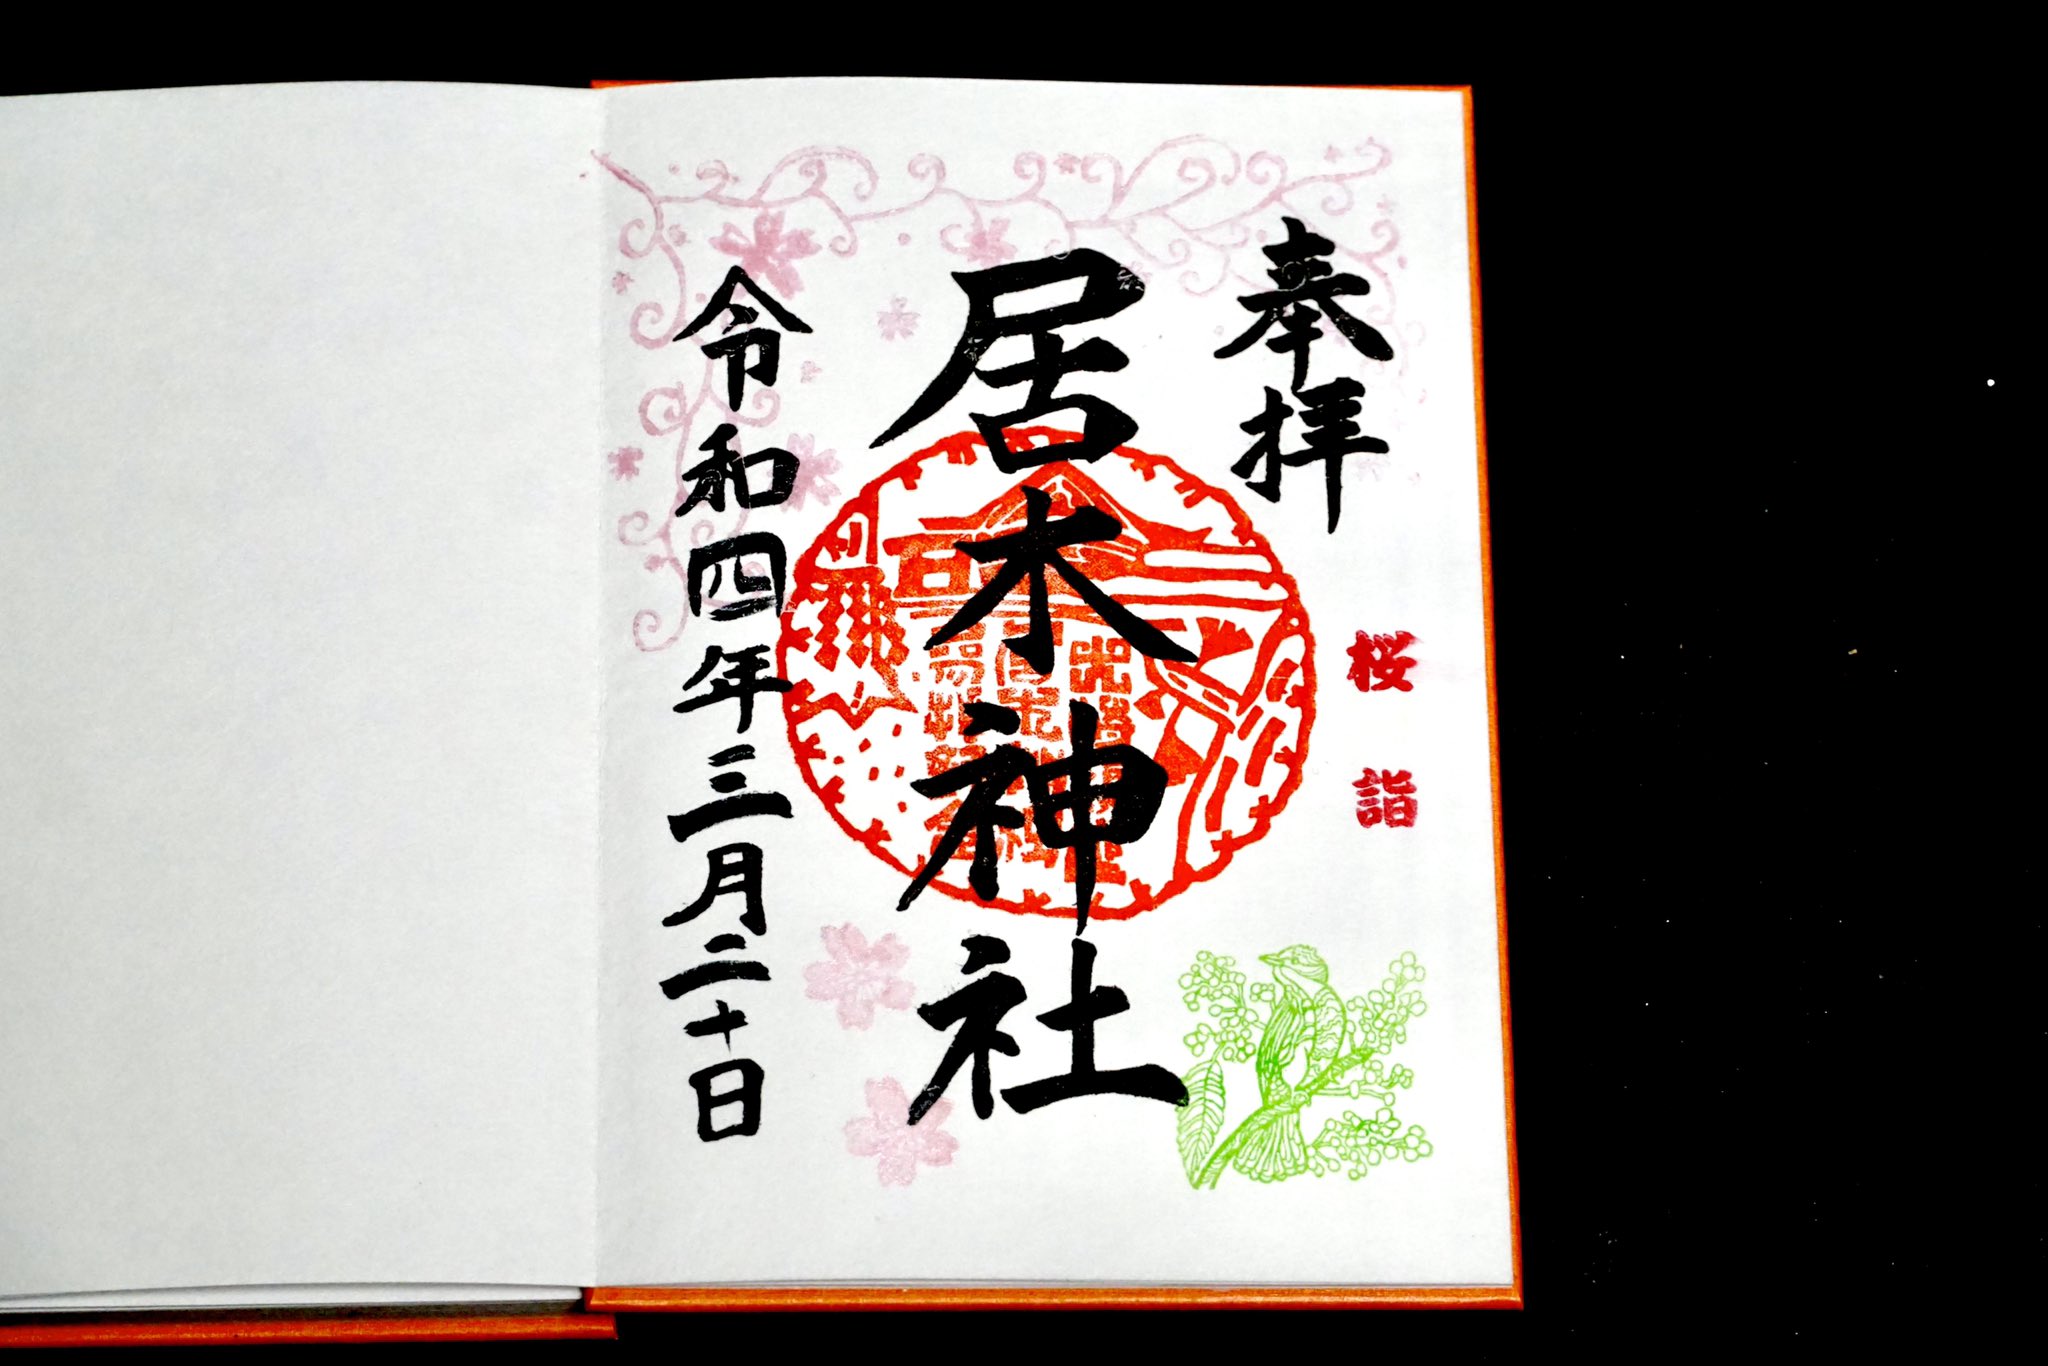 奉拝
桜詣
居木神社
令和四年三月二十日